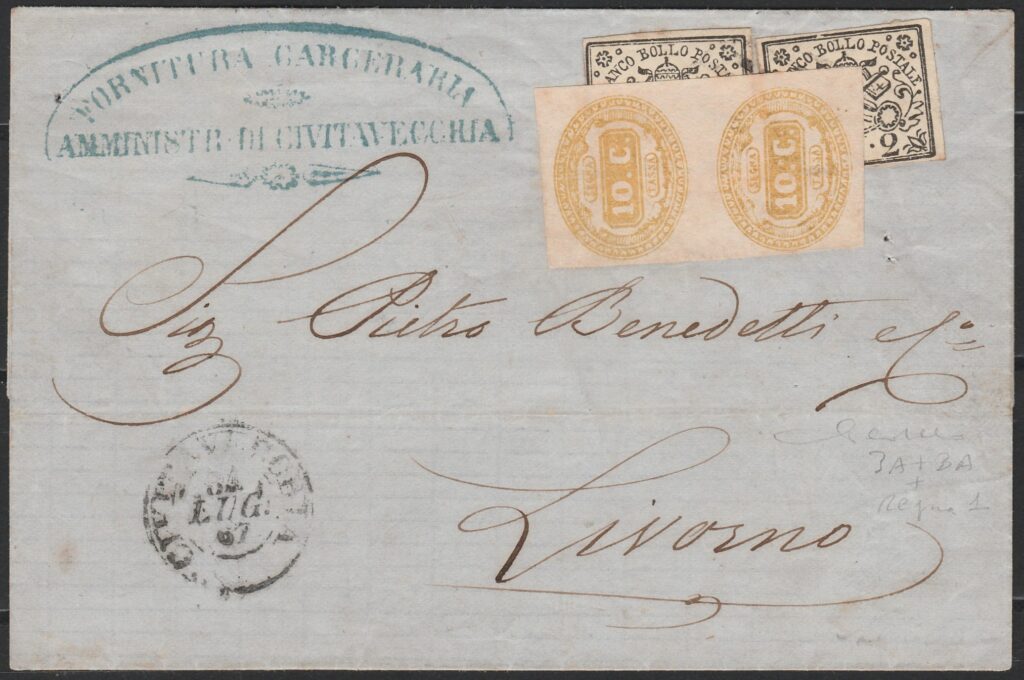 FORNITURA CARCERARIA
AMMINISTR. DI CIVITAVECCHIA
ANCO BOLLO POSTALE
ANCO BOLLO POSTALE
2
SEGNA 10.C. TASSA
SEGNA 10.C. TASSA
Sig Pietro Benedetti e C.º
Livorno
CIVITAVECCHIA
LUG.
67
3A+2A
+
Segna 1